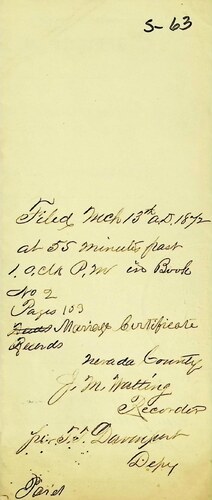 S-63
Filed Mch 13th A.D. 1872
at 55 minutes past
1, O,clk P, M in Book
No 2
Pages 103
Marriage Certificate
Records
Nevada County
J. M. Walling
Recorder
per Davenport
Depy
Paid